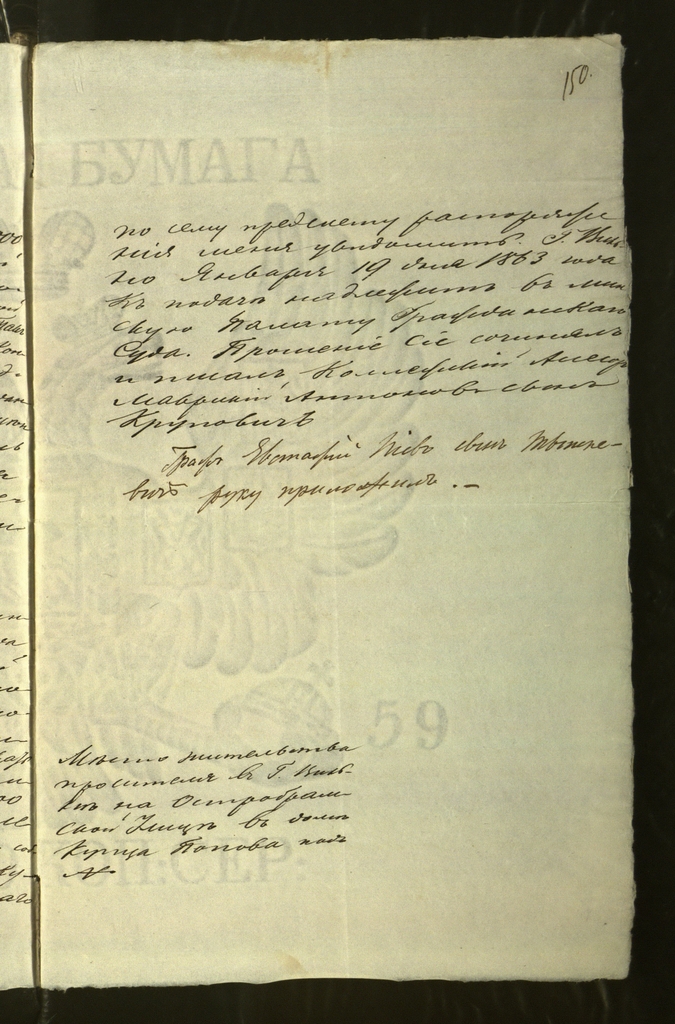 150.
БУМАГА
по сему предмету распоряже
нія меня увѣдомить. Г. Виль
но Января 19 дня 1863 года
Къ подачѣ надлежитъ въ Мин
скую Палату Гражданскаго
Суда. Прошеніе сіе сочинялъ
и писалъ Коллежскій Ассесоръ
Маврикій Антоновъ сынъ
Круповичъ
Графъ Евстафій сынъ Тышке-
вичъ руку приложилъ. —
59
Мѣсто жительства
просителя въ Г. Виль-
нѣ на Остробрам-
ской Улицѣ въ домѣ
Купца Попова подъ
№
СЕР: